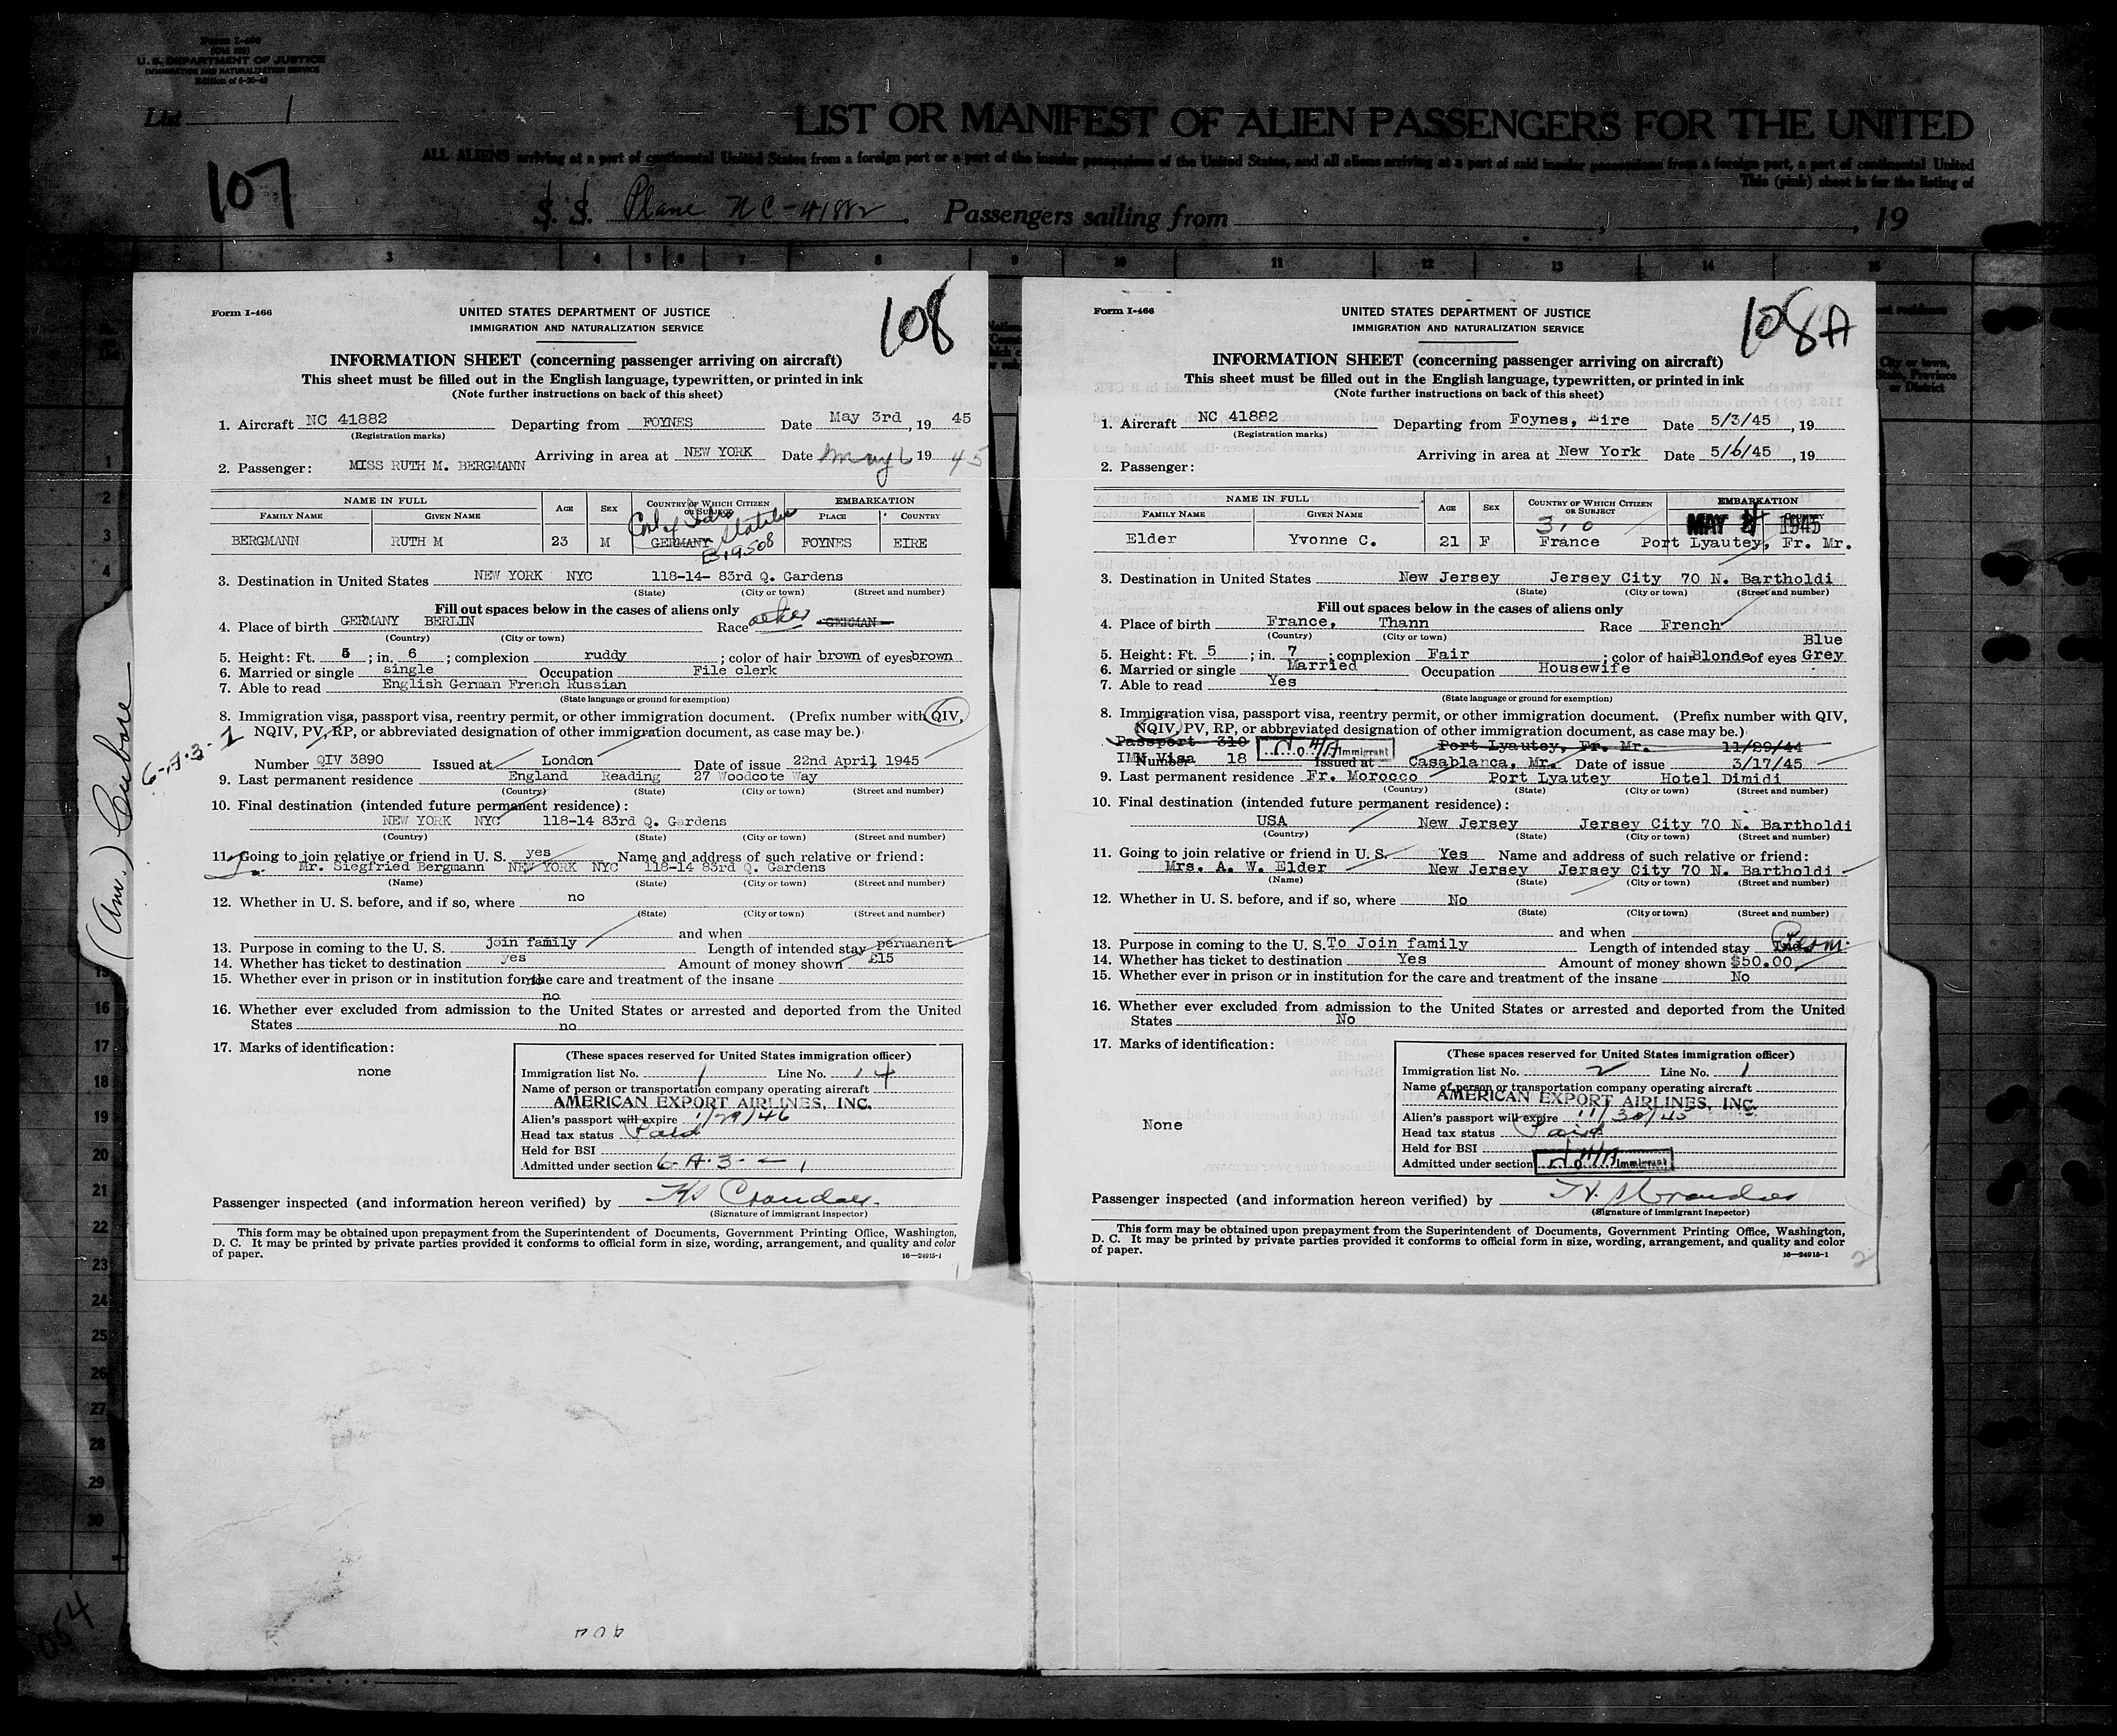 Form I-466
(Old 500)
U. S. DEPARTMENT OF JUSTICE
IMMIGRATION AND NATURALIZATION SERVICE
List 1
LIST OR MANIFEST OF ALIEN PASSENGERS FOR THE UNITED
ALL ALIENS arriving at a port of continental United States from a foreign port or a port of the insular possessions of the United States, and all aliens arriving at a port of said insular possessions from a foreign port, a port of continental United
This (pink) sheet is for the listing of
107
S. S. Plane NC-41882. Passengers sailing from , , 19
2 3 4 5 6 7 8 9 10 11 12 13 14 15
Form I-466
UNITED STATES DEPARTMENT OF JUSTICE
IMMIGRATION AND NATURALIZATION SERVICE
108
INFORMATION SHEET (concerning passenger arriving on aircraft)
This sheet must be filled out in the English language, typewritten, or printed in ink
(Note further instructions on back of this sheet)
1. Aircraft NC 41882 Departing from FOYNES Date May 3rd, 19 45
(Registration marks)
Arriving in area at NEW YORK Date May 6 19 45
2. Passenger: MISS RUTH M. BERGMANN
NAME IN FULL AGE SEX COUNTRY OF WHICH CITIZEN OR SUBJECT EMBARKATION
FAMILY NAME GIVEN NAME PLACE COUNTRY
BERGMANN RUTH M 23 M GERMANY FOYNES EIRE
Stateless
B19508
3. Destination in United States NEW YORK NYC 118-14- 83rd Q. Gardens
(State) (City or town) (Street and number)
Fill out spaces below in the cases of aliens only
4. Place of birth GERMANY BERLIN Race GERMAN
(Country) (City or town)
5. Height: Ft. 5; in. 6; complexion ruddy; color of hair brown of eyes brown
6. Married or single single Occupation File clerk
7. Able to read English German French Russian
(State language or ground for exemption)
8. Immigration visa, passport visa, reentry permit, or other immigration document. (Prefix number with QIV,
NQIV, PV, RP, or abbreviated designation of other immigration document, as case may be.)
6-A-3-1
Number QIV 3890 Issued at London Date of issue 22nd April 1945
9. Last permanent residence England Reading 27 Woodcote Way
(Country) (State) (City or town) (Street and number)
10. Final destination (intended future permanent residence):
NEW YORK NYC 118-14 83rd Q. Gardens
(Country) (State) (City or town) (Street and number)
11. Going to join relative or friend in U. S. yes Name and address of such relative or friend:
Mr. Siegfried Bergmann NEW YORK NYC 118-14 83rd Q. Gardens
(Name) (State) (City or town) (Street and number)
12. Whether in U. S. before, and if so, where no
(State) (City or town) (Street and number)
and when
13. Purpose in coming to the U. S. join family Length of intended stay permanent
14. Whether has ticket to destination yes Amount of money shown £15
15. Whether ever in prison or in institution for the care and treatment of the insane
no
16. Whether ever excluded from admission to the United States or arrested and deported from the United
States no
17. Marks of identification:
none
(These spaces reserved for United States immigration officer)
Immigration list No. 1 Line No. 14
Name of person or transportation company operating aircraft
AMERICAN EXPORT AIRLINES, INC.
Alien's passport will expire 1/29/46
Head tax status Paid
Held for BSI
Admitted under section 6-A-3- - 1
Passenger inspected (and information hereon verified) by
(Signature of immigrant inspector)
This form may be obtained upon prepayment from the Superintendent of Documents, Government Printing Office, Washington,
D. C. It may be printed by private parties provided it conforms to official form in size, wording, arrangement, and quality and color
of paper. 16—24915-1
Form I-466
UNITED STATES DEPARTMENT OF JUSTICE
IMMIGRATION AND NATURALIZATION SERVICE
108A
INFORMATION SHEET (concerning passenger arriving on aircraft)
This sheet must be filled out in the English language, typewritten, or printed in ink
(Note further instructions on back of this sheet)
1. Aircraft NC 41882 Departing from Foynes, Eire Date 5/3/45, 19
(Registration marks)
Arriving in area at New York Date 5/6/45, 19
2. Passenger:
NAME IN FULL AGE SEX COUNTRY OF WHICH CITIZEN OR SUBJECT EMBARKATION
FAMILY NAME GIVEN NAME COUNTRY
3, 0 MAY 1945
Elder Yvonne C. 21 F France Port Lyautey, Fr. Mr.
3. Destination in United States New Jersey Jersey City 70 N. Bartholdi
(State) (City or town) (Street and number)
Fill out spaces below in the cases of aliens only
4. Place of birth France, Thann Race French
(Country) (City or town)
Blue
5. Height: Ft. 5; in. 7; complexion Fair; color of hair Blonde of eyes Grey
6. Married or single Married Occupation Housewife
7. Able to read Yes
(State language or ground for exemption)
8. Immigration visa, passport visa, reentry permit, or other immigration document. (Prefix number with QIV,
NQIV, PV, RP, or abbreviated designation of other immigration document, as case may be.)
Passport 310 Immigrant Port Lyautey, Fr. Mr. 11/29/44
IMM Visa Number 18 Issued at Casablanca, Mr. Date of issue 3/17/45
9. Last permanent residence Fr. Morocco Port Lyautey Hotel Dimidi
(Country) (State) (City or town) (Street and number)
10. Final destination (intended future permanent residence):
USA New Jersey Jersey City 70 N. Bartholdi
(Country) (State) (City or town) (Street and number)
11. Going to join relative or friend in U. S. Yes Name and address of such relative or friend:
Mrs. A. W. Elder New Jersey Jersey City 70 N. Bartholdi
(Name) (State) (City or town) (Street and number)
12. Whether in U. S. before, and if so, where No
(State) (City or town) (Street and number)
and when
13. Purpose in coming to the U. S. To Join family Length of intended stay Ind. Perm.
14. Whether has ticket to destination Yes Amount of money shown $50.00
15. Whether ever in prison or in institution for the care and treatment of the insane No
16. Whether ever excluded from admission to the United States or arrested and deported from the United
States No
17. Marks of identification:
None
(These spaces reserved for United States immigration officer)
Immigration list No. 2 Line No. 1
Name of person or transportation company operating aircraft
AMERICAN EXPORT AIRLINES, INC.
Alien's passport will expire 11/30/45
Head tax status Paid
Held for BSI
Admitted under section Immigrant
Passenger inspected (and information hereon verified) by
(Signature of immigrant inspector)
This form may be obtained upon prepayment from the Superintendent of Documents, Government Printing Office, Washington,
D. C. It may be printed by private parties provided it conforms to official form in size, wording, arrangement, and quality and color
of paper. 16—24915-1
2
1
2
3
4
15
16
17
18
19
20
21
22
23
24
25
26
27
28
29
30
054
404